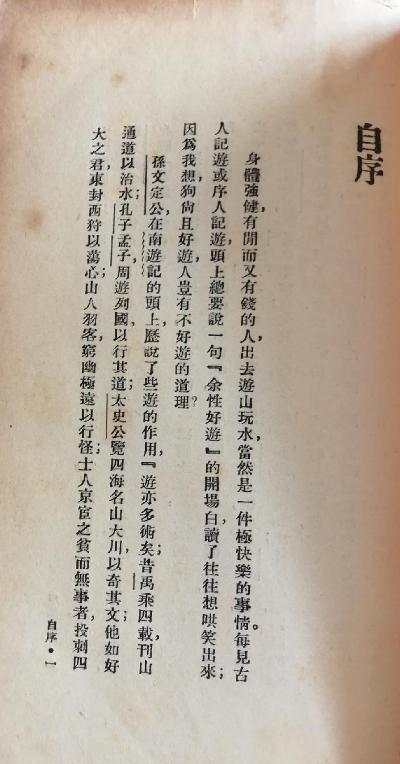 自序
身體強健有閒而又有錢的人，出去遊山玩水，當然是一件極快樂的事情。每見古
人記遊或序人記遊，頭上總要說一句『余性好遊』的開場白，讀了往往想哄笑出來；
因為我想，狗尙且好遊，人豈有不好遊的道理？
孫文定公在南遊記的頭上，歷說了些遊的作用，『遊亦多術矣；昔禹乘四載，刊山
通道以治水；孔子孟子，周遊列國，以行其道；太史公覽四海名山大川，以奇其文；他如好
大之君，東封西狩以蕩心；山人羽客，窮幽極遠以行怪；士人京宦之貧而無事者，投刺四
自序·一